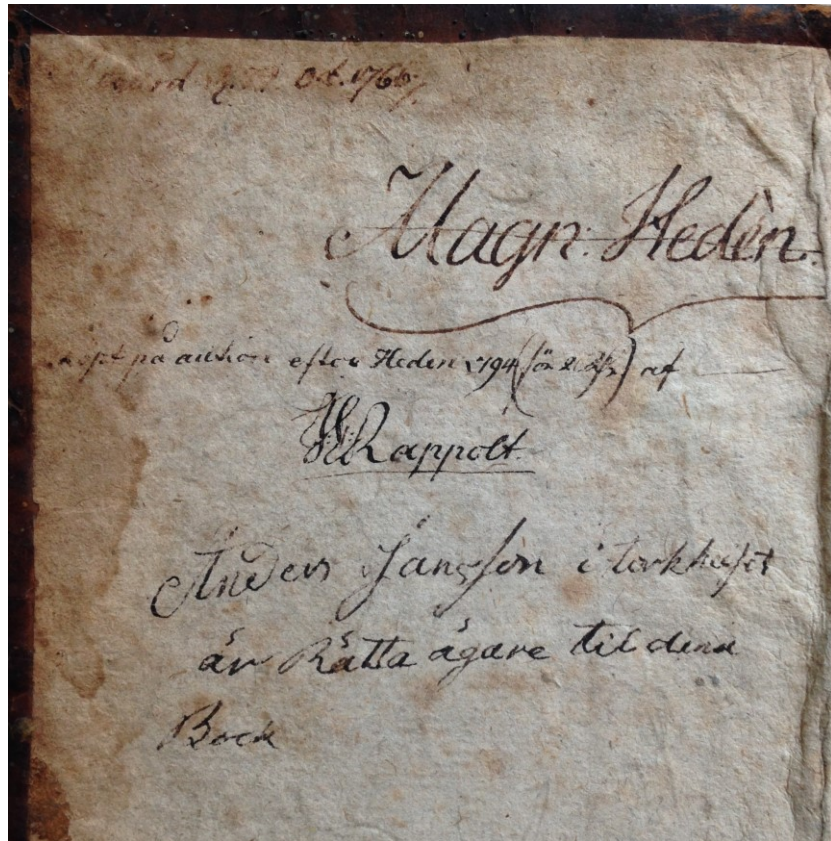 Oct. 1766
Magn: Hedèn.
köpt på auction efter Heden 1794 (för af
Rappolt.
Anders Jansson i torkhuset
är Rätta ägare til denna
Bock